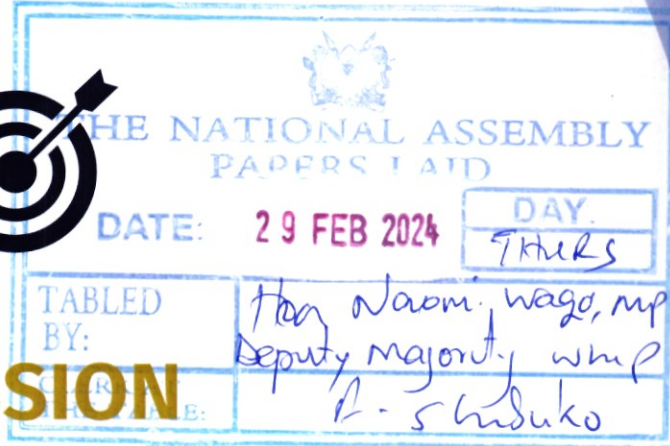 THE NATIONAL ASSEMBLY
PAPERS LAID
DATE: 29 FEB 2024
DAY.
THURS
TABLED BY:
Hon Naomi Wago, MP
Deputy Majority Whip
SION
CLERK AT
THE TABLE:
A. Shibuko